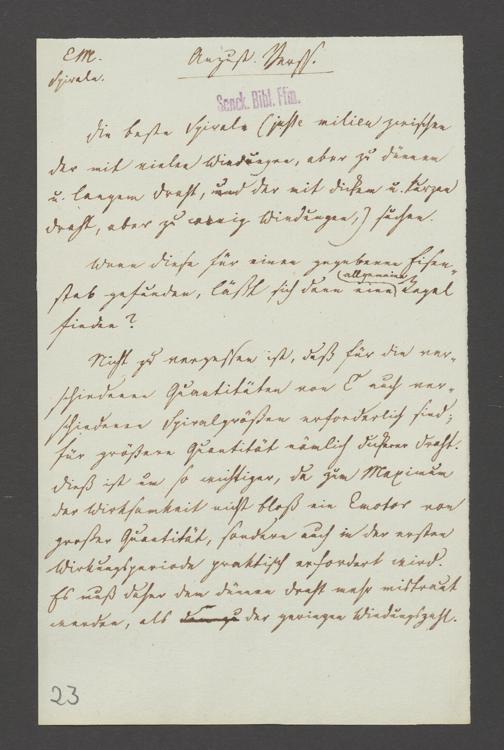 EM.
Spirale.
August. Verss.
Senck. Bibl. Ffm.
Die beste Spirale (juste milieu zwischen
der mit vielen Windungen, aber zu dünnem
u. langem Draht, und der mit dickem u. kurzen
Draht, aber zu wenig Windungen,) suchen.
Wenn diese für einen gegebenen Eisen-
stab gefunden, läßt sich dann eine (allgemeine) Regel
finden?
Nicht zu vergessen ist, daß für die ver-
schiedenen Quantitäten von auch ver-
schiedene Spiralgrößen erforderlich sind;
für größere Quantität nämlich dickerer Draht.
Dieß ist um so wichtiger, da zum Maximum
der Wirksamkeit nicht bloß ein Emotor von
großer Quantität, sondern auch in der ersten
Wirkungsperiode praktisch erfordert wird.
Es muß daher dem dünnen Draht mehr mistraut
werden, als der geringen Windungszahl.
23